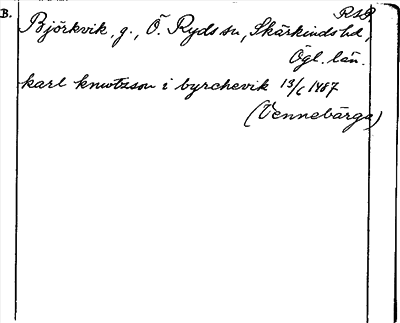 B.
RSP
Björkvik, g., Ö. Ryds sn, Skärkinds hd,
Ögl. län.
karl knwtzson i byrchevik 13/6 1487
(Vennebärga)